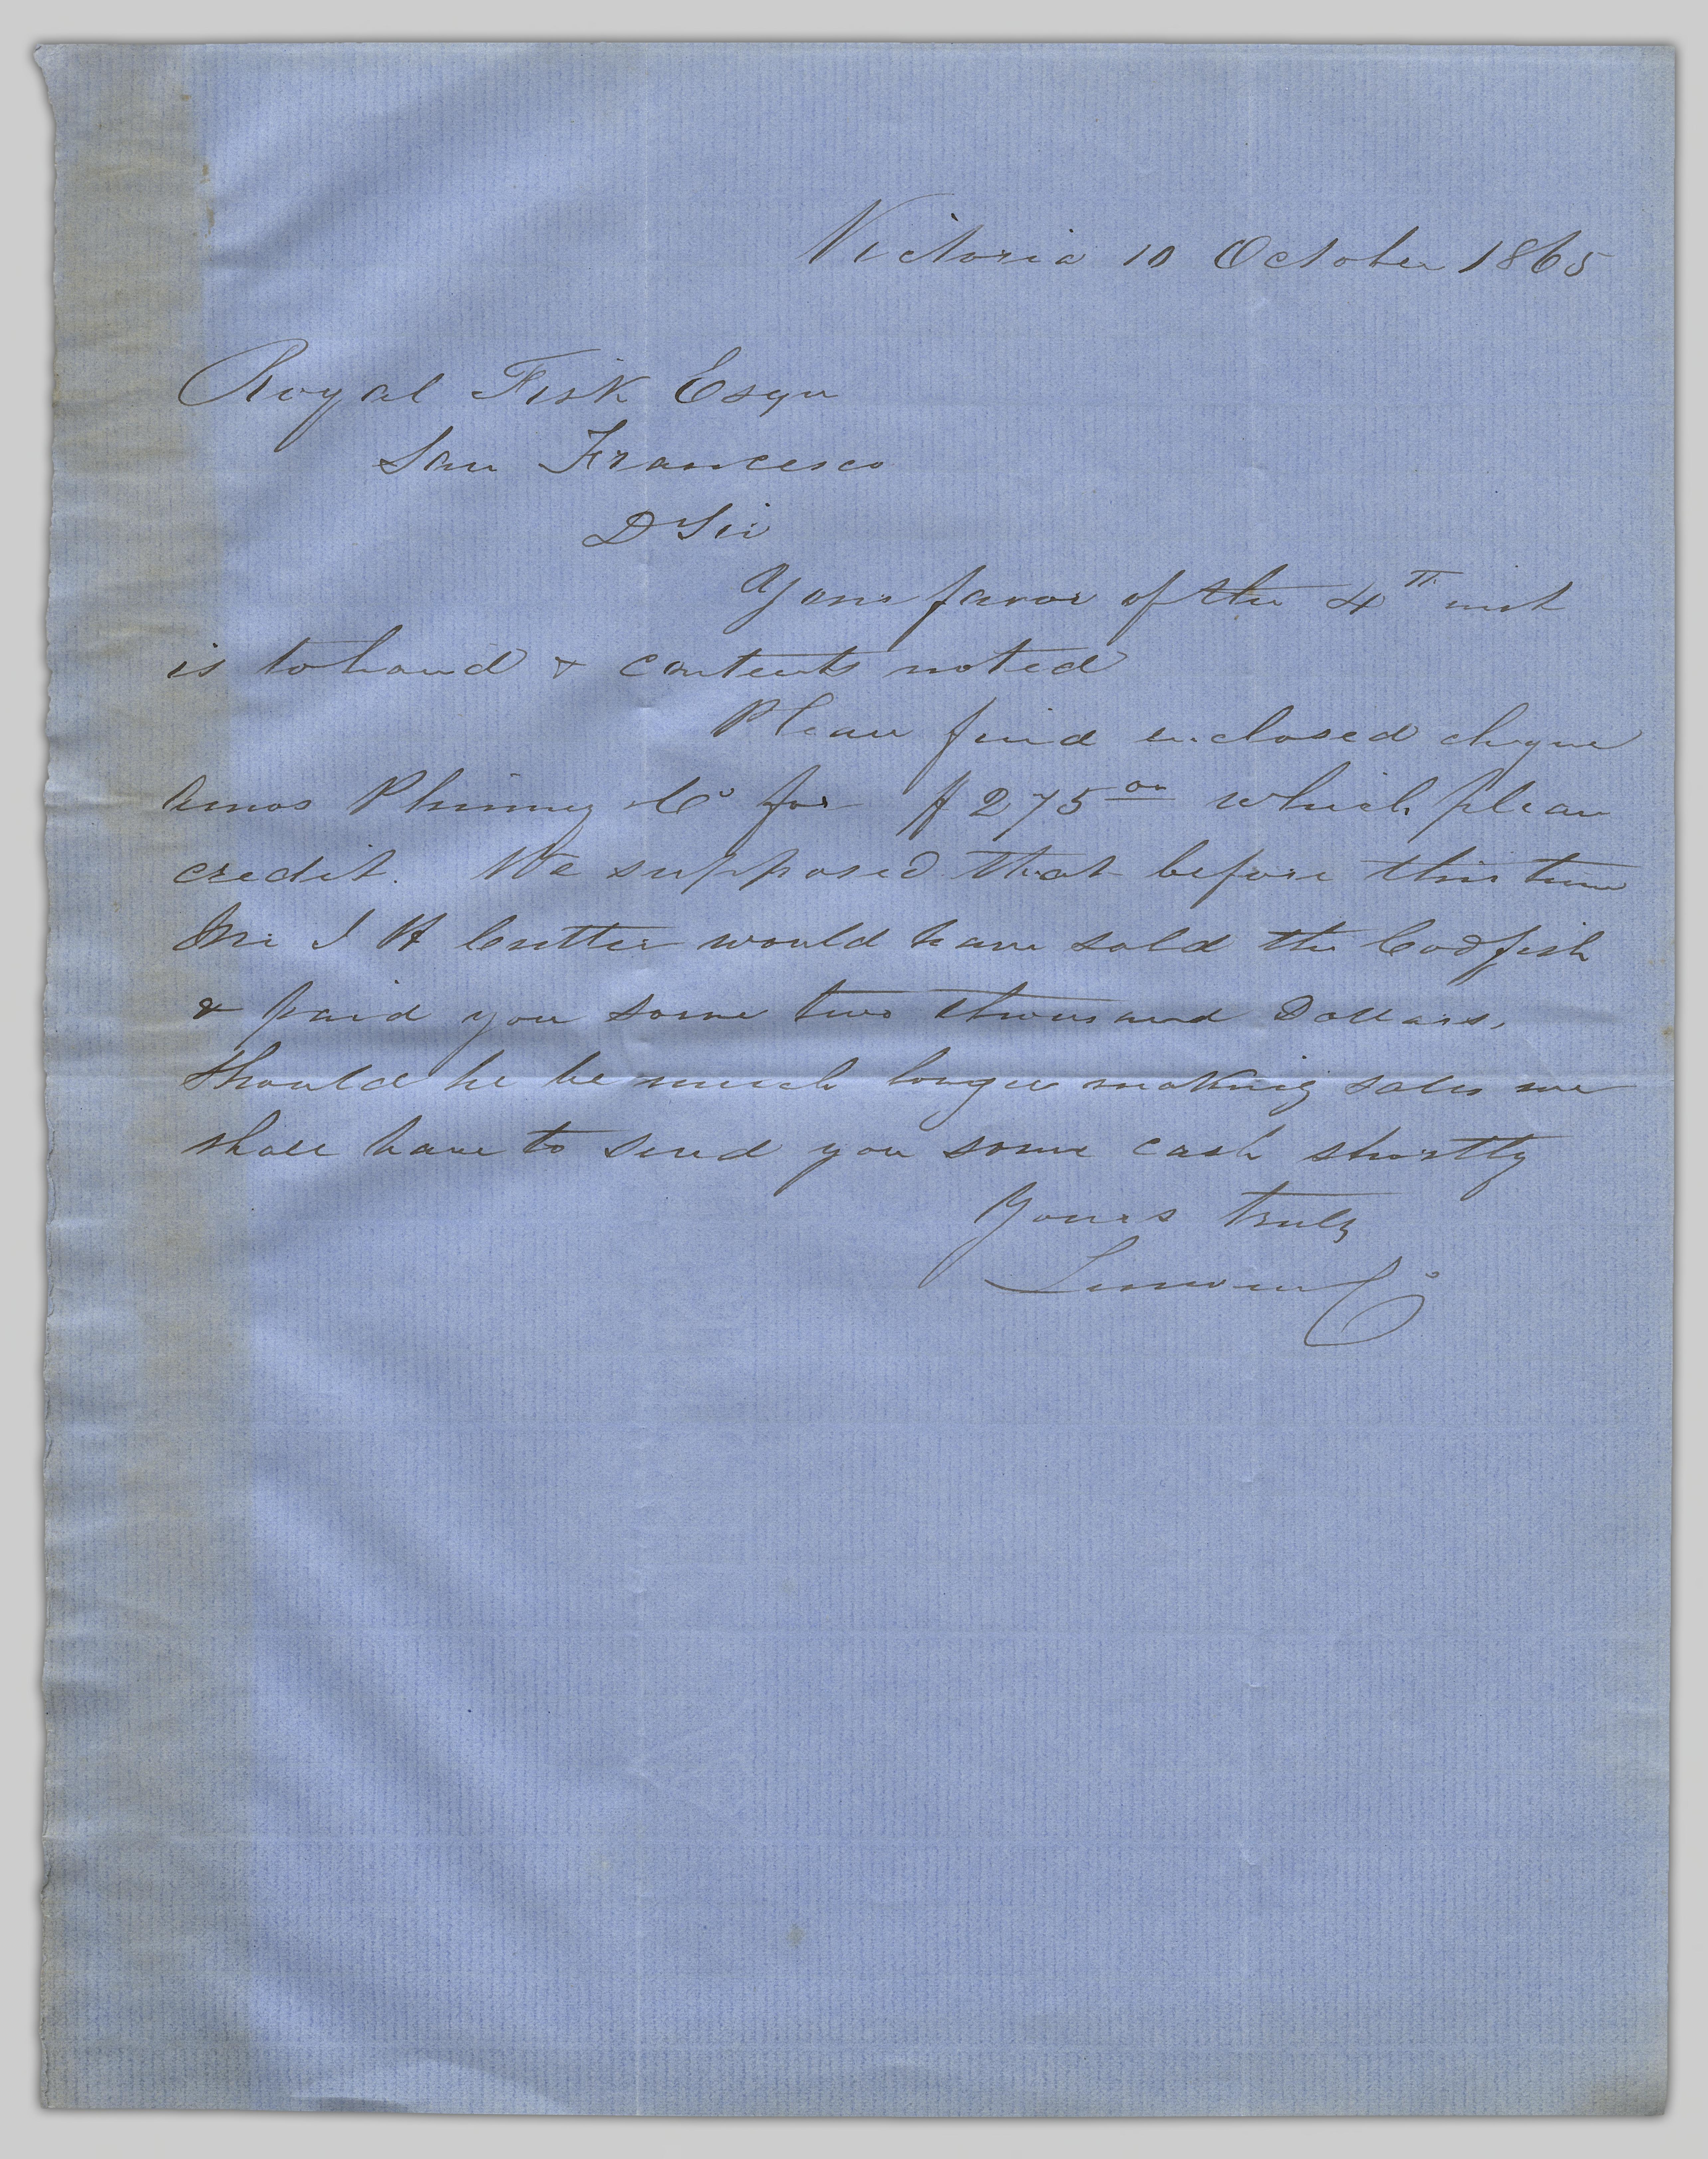 Victoria 10 October 1865
Royal Fisk Esqr
San Francesco
D Sir
Your favor of the 4th inst
is to hand & contents noted
Please find enclosed cheque
Amos Phinney & Co for $275 00 which please
credit. We supposed that before this time
Mr J H Cutter would have sold the Codfish
& paid you some two thousand Dollars.
Should he be much longer making sales we
shall have to send you some cash shortly
Yours truly